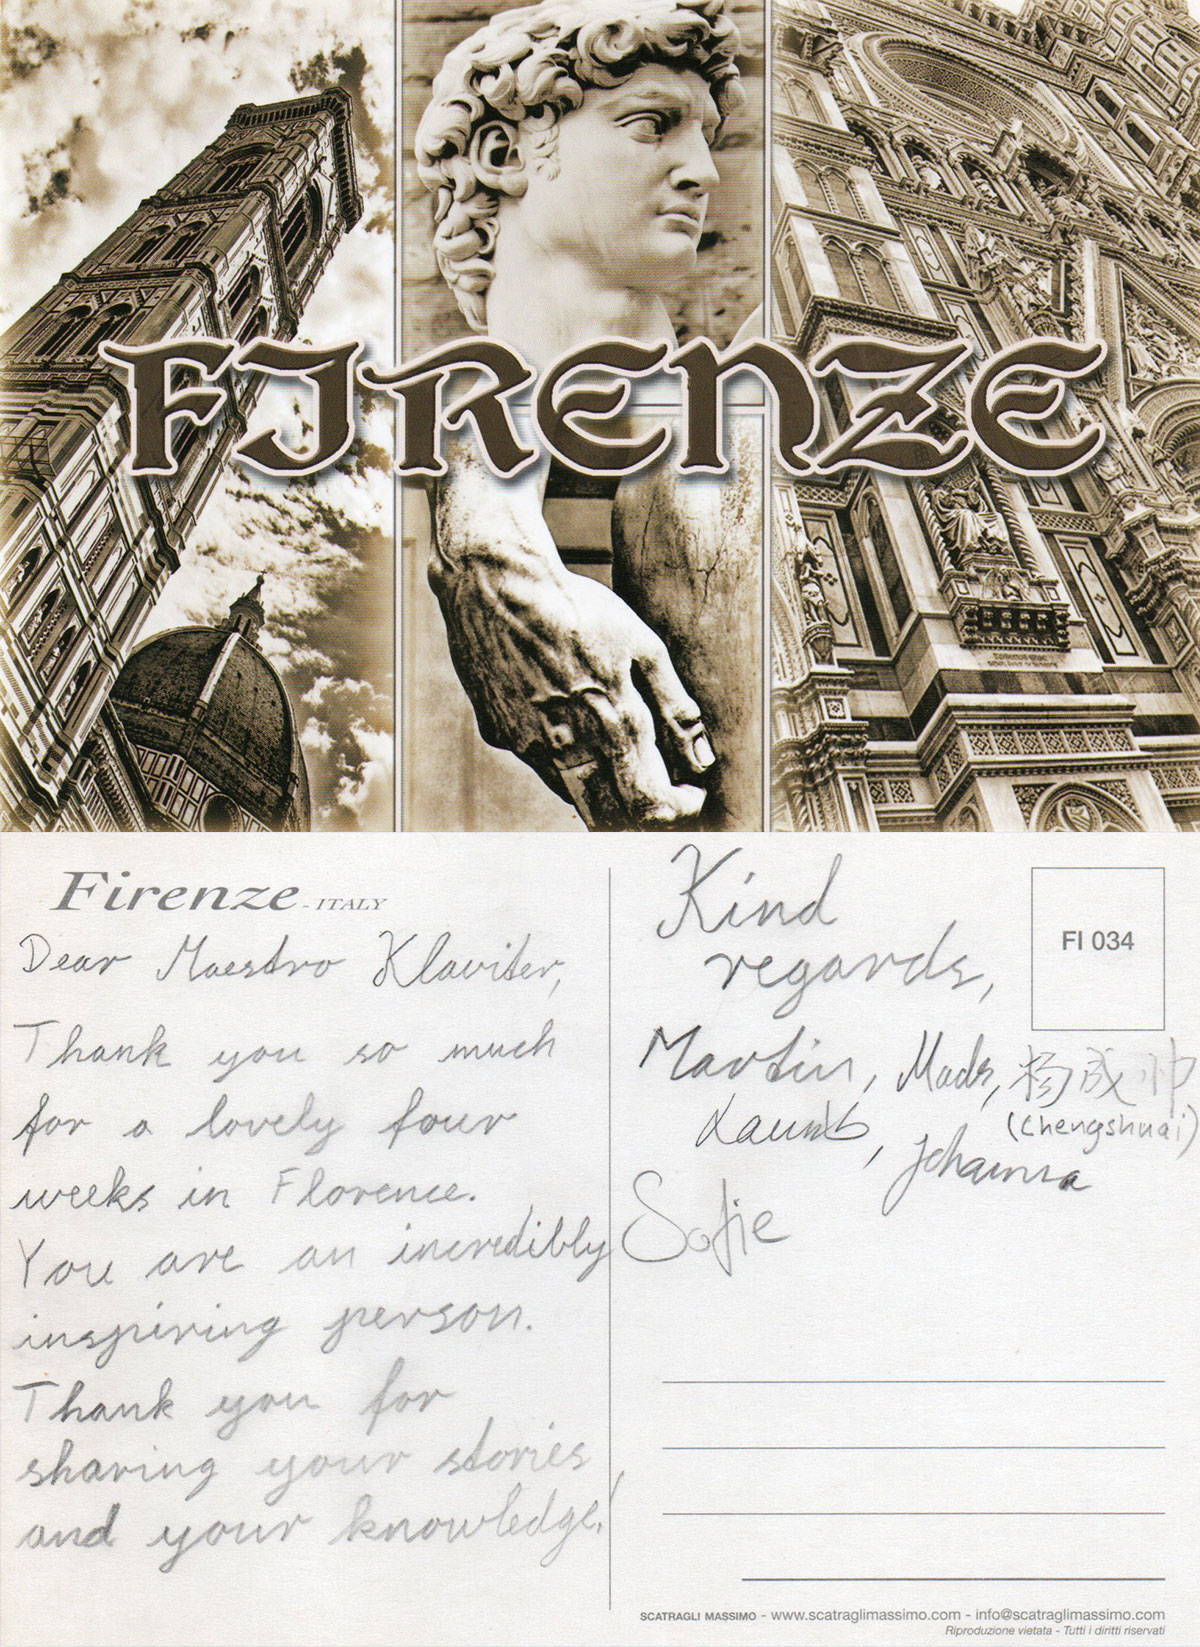 FIRENZE
Firenze - ITALY
Dear Maestro Klaviter,
Thank you so much
for a lovely four
weeks in Florence.
You are an incredibly
inspiring person.
Thank you for
sharing your stories
and your knowledge!
Kind
regards,
FI 034
Martin, Mads, 杨成帅
(Chengshuai)
Johanna
Sofie
SCATRAGLI MASSIMO - www.scatraglimassimo.com - info@scatraglimassimo.com
Riproduzione vietata - Tutti i diritti riservati